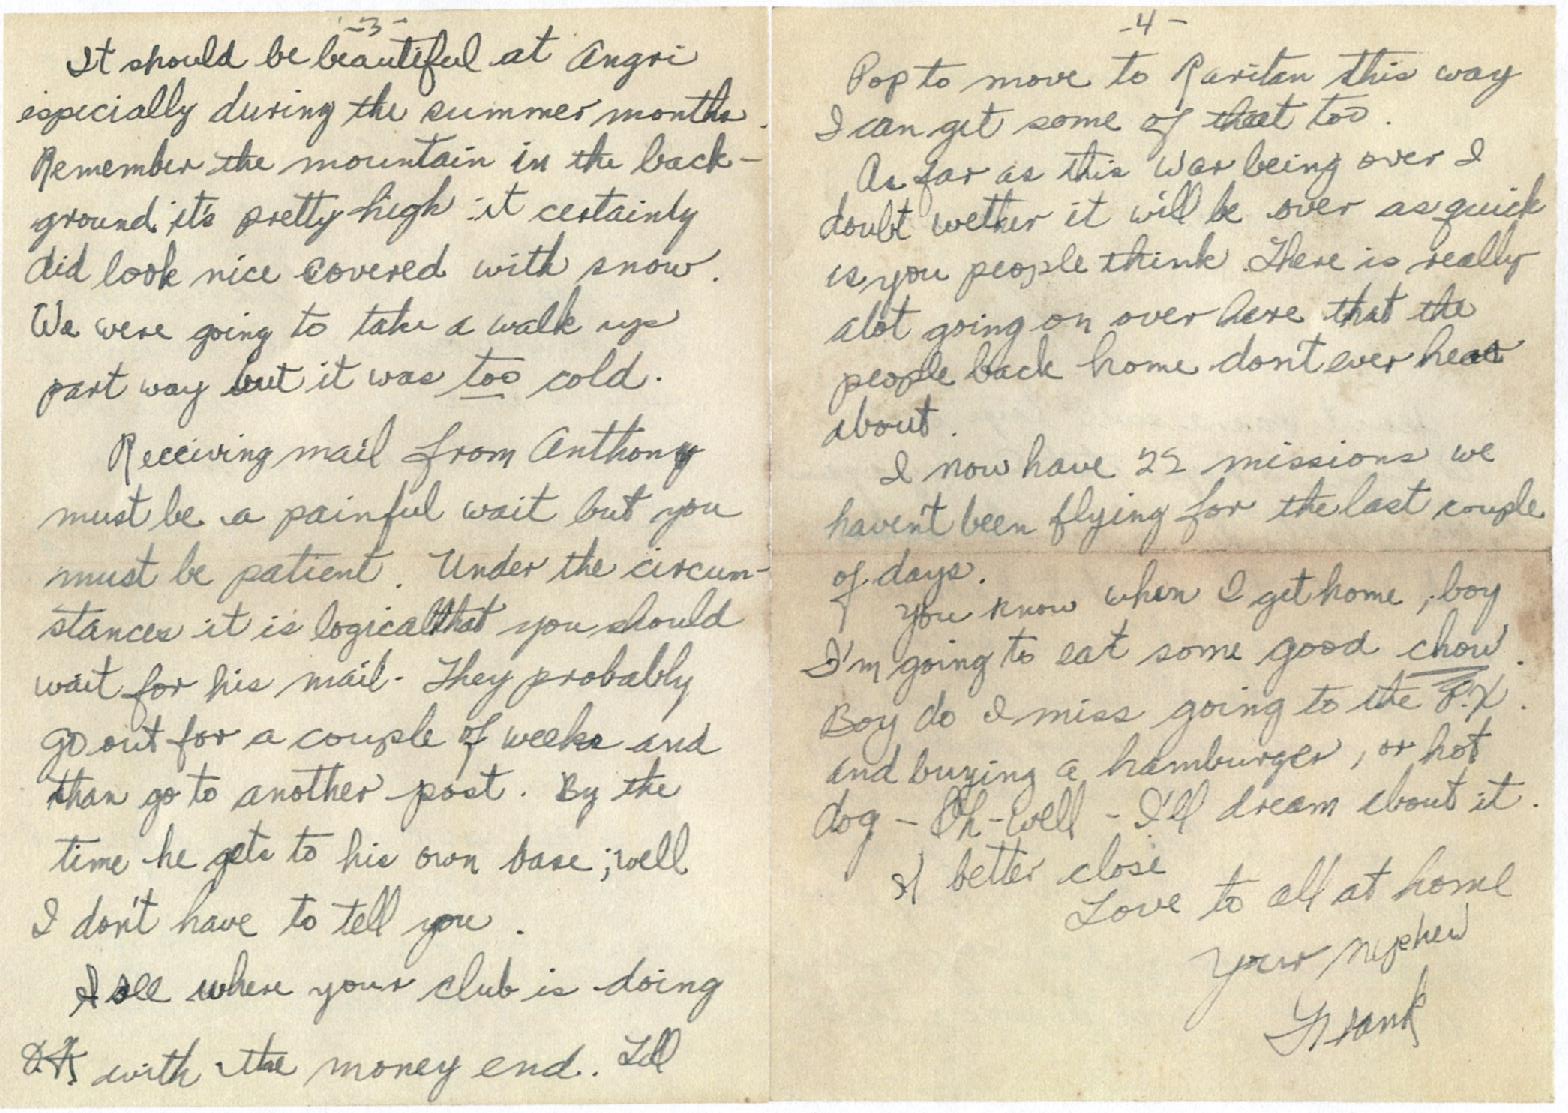 -3-
It should be beautiful at Angri
especially during the summer months.
Remember the mountain in the back-
ground, it's pretty high it certainly
did look nice covered with snow.
We were going to take a walk up
part way but it was too cold.
Receiving mail from Anthony
must be a painful wait but you
must be patient. Under the circum-
stances it is logical that you should
wait for his mail. They probably
go out for a couple of weeks and
than go to another post. By the
time he gets to his own base; well
I don't have to tell you.
I see where your club is doing
OK with the money end. Tell
-4-
Pop to move to Raritan this way
I can get some of that too.
As far as this war being over I
doubt wether it will be over as quick
is you people think. There is really
alot going on over here that the
people back home don't ever hear
about.
I now have 22 missions we
haven't been flying for the last couple
of days.
You know when I get home, boy
I'm going to eat some good chow.
Boy do I miss going to the P.X.
and buying a hamburger, or hot
dog - Oh-well - I'll dream about it.
I better close
Love to all at home
Your Nephew
Frank